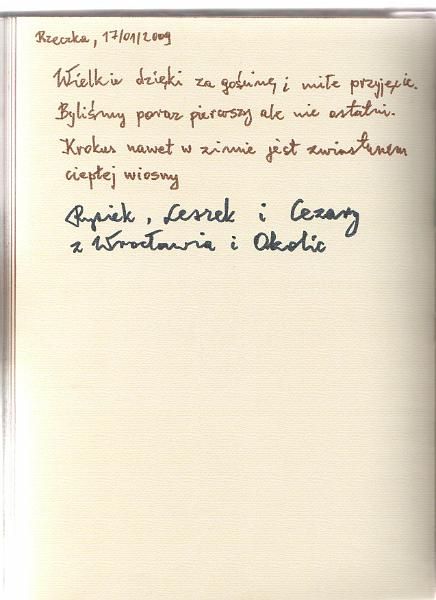 Rzeczka, 17/01/2009
Wielkie dzięki za gościnę i miłe przyjęcie.
Byliśmy poraz pierwszy ale nie ostatni.
Krokus nawet w zimie jest zwiastunem
ciepłej wiosny
Rysiek, Leszek i Cezary
z Wrocławia i Okolic